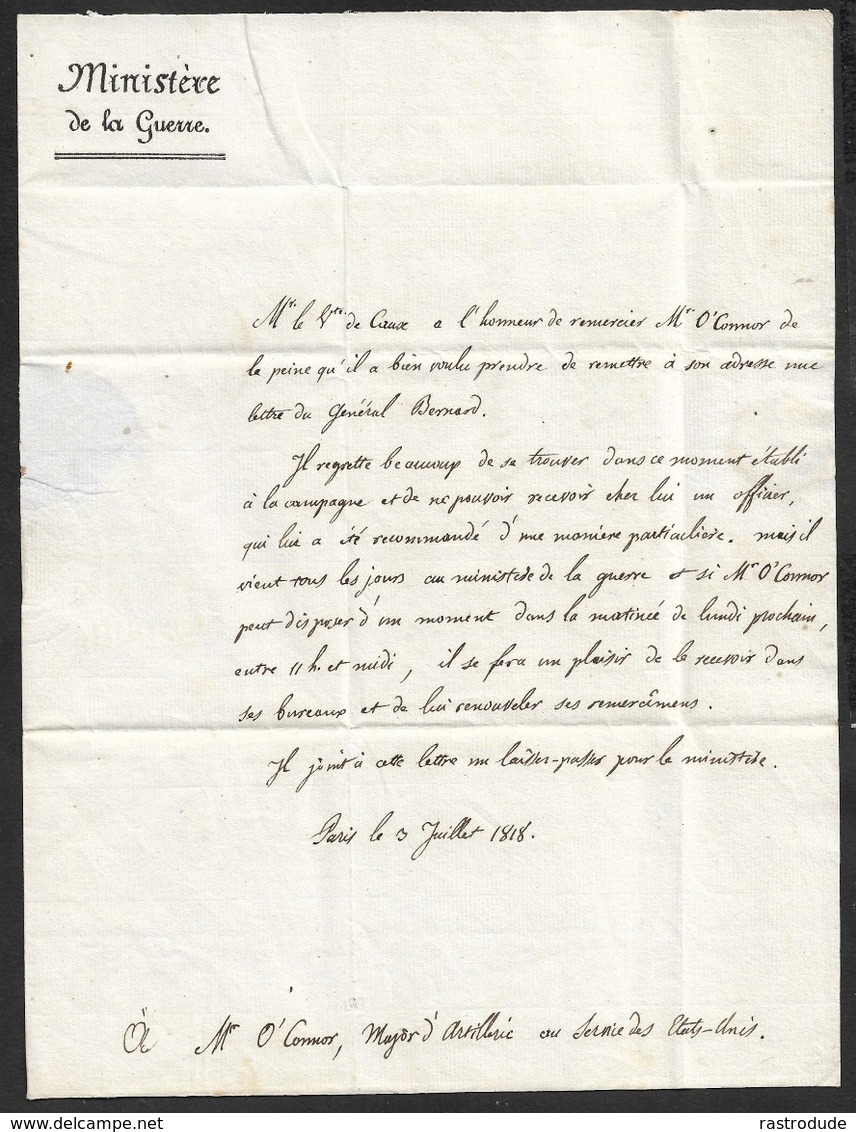 Ministère
de la Guerre.
Mr. le Vte. de Caux a l'honneur de remercier Mr O'Connor de
la peine qu'il a bien voulu prendre de remettre à son adresse une
lettre du Général Bernard.
Il regrette beaucoup de se trouver dans ce moment établi
à la campagne et de ne pouvoir recevoir chez lui un officier,
qui lui a été recommandé d'une manière particulière. mais il
vient tous les jours au ministère de la guerre et si Mr O'Connor
peut disposer d'un moment dans la matinée de lundi prochain,
entre 11 h. et midi, il se fera un plaisir de le recevoir dans
ses bureaux et de lui renouveler ses remercîmens.
Il joint à cette lettre un laisser-passer pour le ministère.
Paris le 3 Juillet 1818.
À Mr O'Connor, Major d'Artillerie au Service des Etats-Unis.
www.delcampe.net
rastrodude